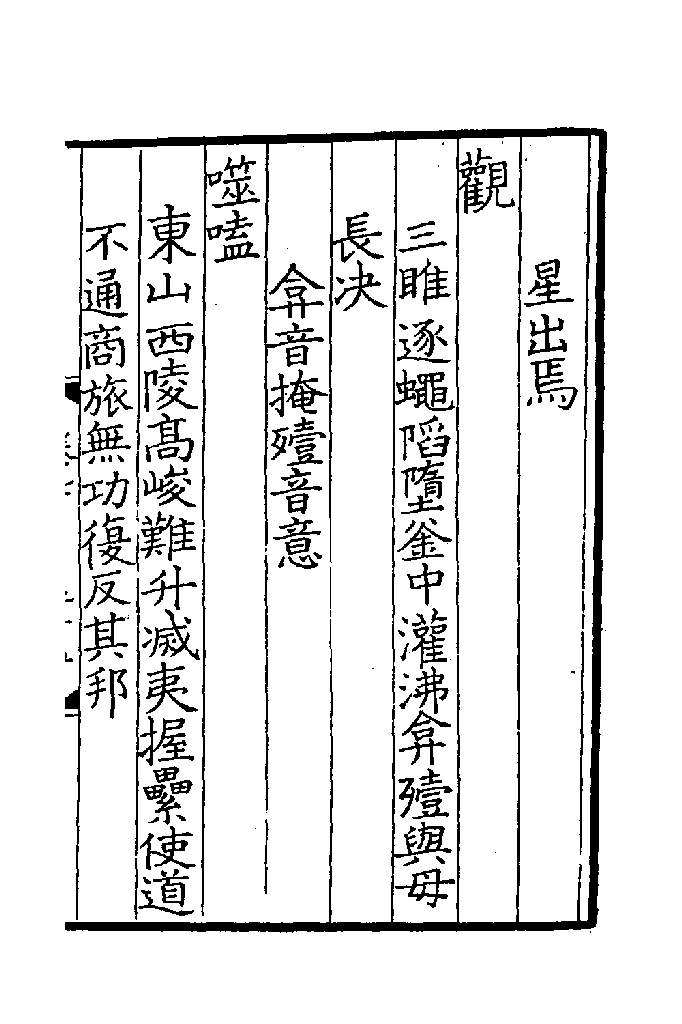 星出焉
觀
三雎逐蠅陷墮釜中灌沸弇殪與母
長决
弇音掩殪音意
噬嗑
東山西陵髙峻難升滅夷掘壘使道
不通商旅無功復反其邦